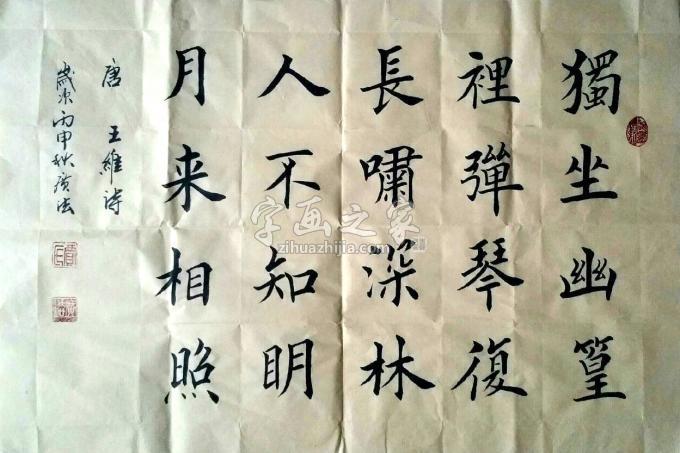 獨坐幽篁
裡彈琴復
長嘯深林
人不知明
月来相照
唐 王維詩
歲次丙申秋廣法
字画之家
zihuazhijia.com